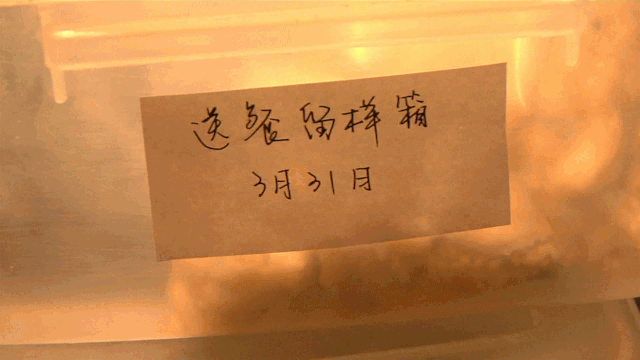 送餐留样箱
3月31日